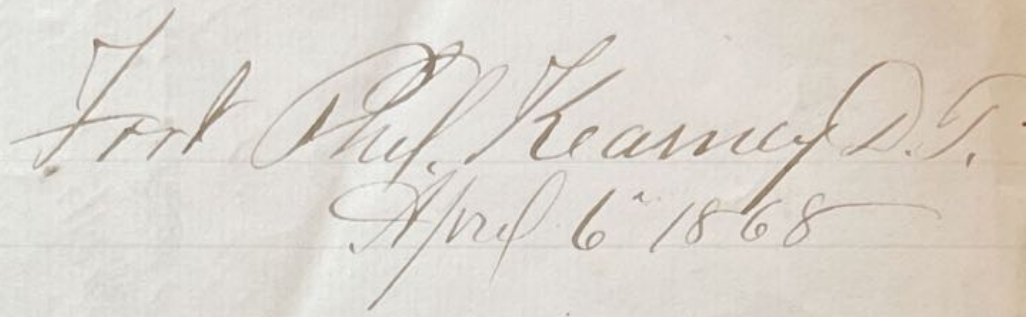 Fort Phil. Kearney D.T.
April 6" 1868